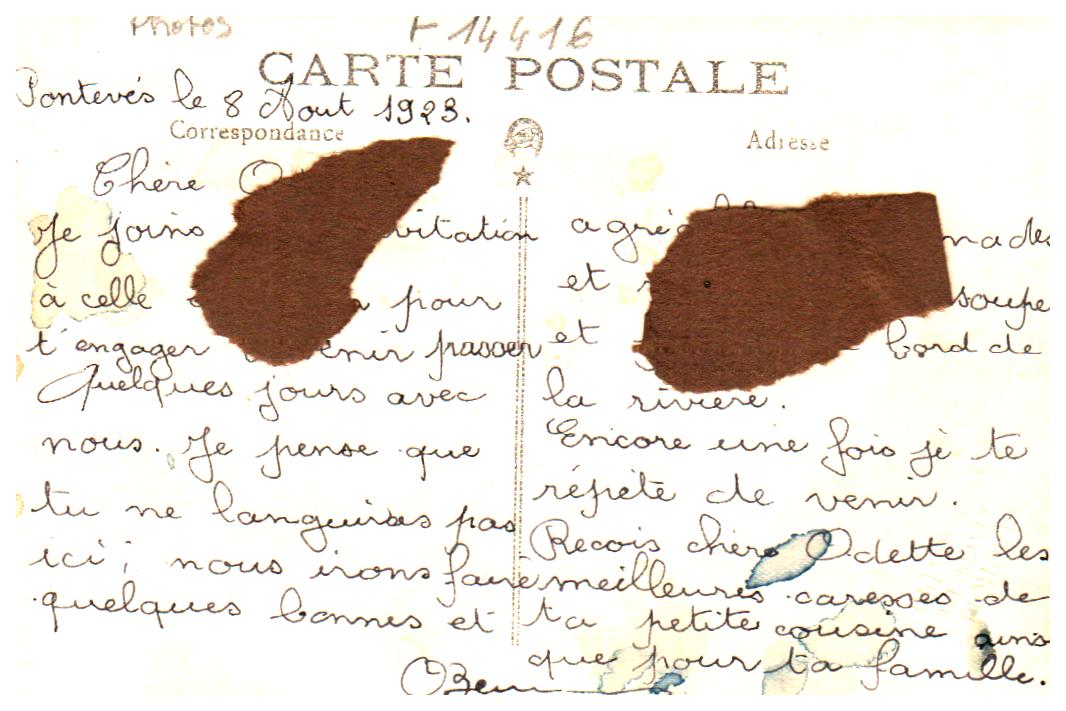 Photos
F 14416
CARTE POSTALE
Pontevés le 8 Aout 1923.
Correspondance
Chère
Je joins vitation
à celle pour
t'engager enir passer
quelques jours avec
nous. Je pense que
tu ne languiras pas
ici ; nous irons faire
quelques bonnes et
Adresse
agré nades
et soupe
et bord de
la rivière.
Encore une fois je te
répète de venir.
Recois chère Odette les
meilleures caresses de
ta petite cousine ainsi
que pour ta famille.